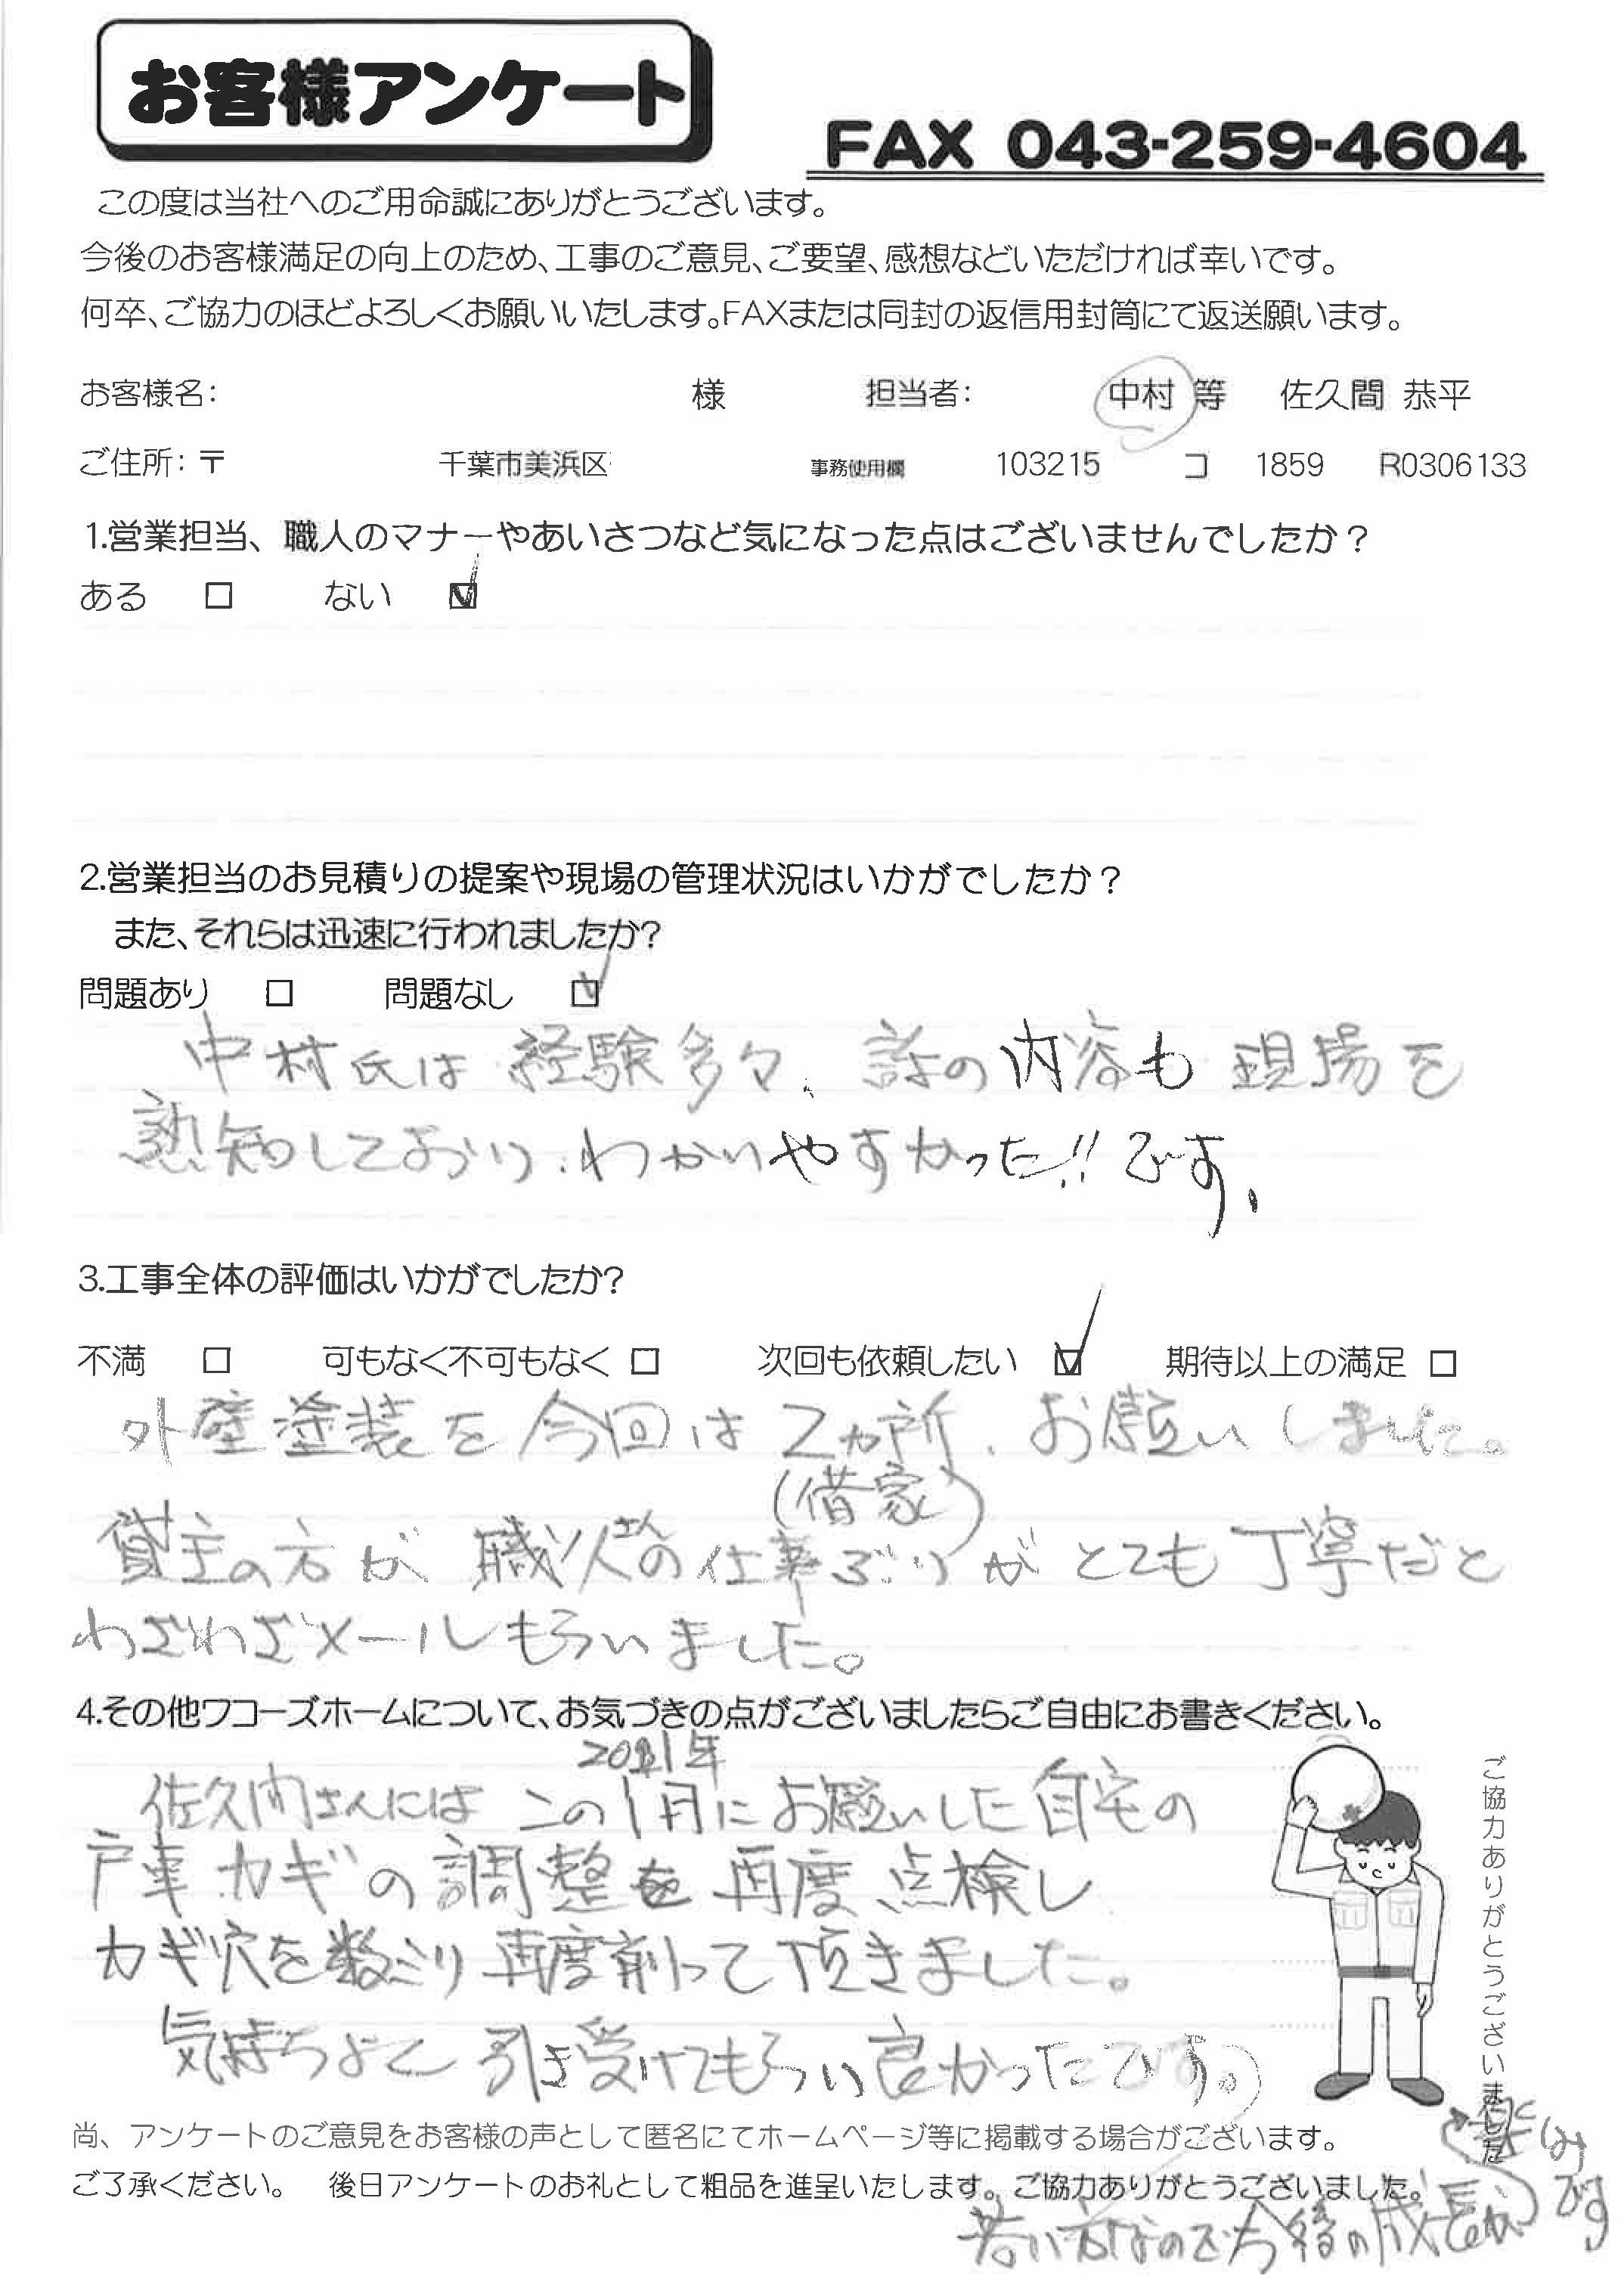 お客様アンケート
FAX 043-259-4604
この度は当社へのご用命誠にありがとうございます。
今後のお客様満足の向上のため、工事のご意見、ご要望、感想などいただければ幸いです。
何卒、ご協力のほどよろしくお願いいたします。FAXまたは同封の返信用封筒にて返送願います。
お客様名: 様 担当者: 中村 等 佐久間 恭平
ご住所: 〒 千葉市美浜区 事務使用欄 103215 コ 1859 R0306133
1.営業担当、職人のマナーやあいさつなど気になった点はございませんでしたか？
ある □ ない ☑
2.営業担当のお見積りの提案や現場の管理状況はいかがでしたか？
また、それらは迅速に行われましたか?
問題あり □ 問題なし ☑
中村氏は経験多々、話の内容も現場を
熟知しており、わかりやすかった!!です。
3.工事全体の評価はいかがでしたか?
不満 □ 可もなく不可もなく □ 次回も依頼したい ☑ 期待以上の満足 □
外壁塗装を今回は2ヵ所、お願いしました。
(借家)
貸主の方が職人さんの仕事ぶりがとても丁寧だと
わざわざメールもらいました。
4.その他ワコーズホームについて、お気づきの点がございましたらご自由にお書きください。
2021年
佐久間さんにはこの1月にお願いした自宅の
戸車カギの調整を再度点検し
カギ穴を数ミリ再度削って頂きました。
気持ちよく引き受けてもらい良かったです。
ご協力ありがとうございました
尚、アンケートのご意見をお客様の声として匿名にてホームページ等に掲載する場合がございます。
ご了承ください。 後日アンケートのお礼として粗品を進呈いたします。ご協力ありがとうございました。
若い方なので今後の成長が
楽しみ
です